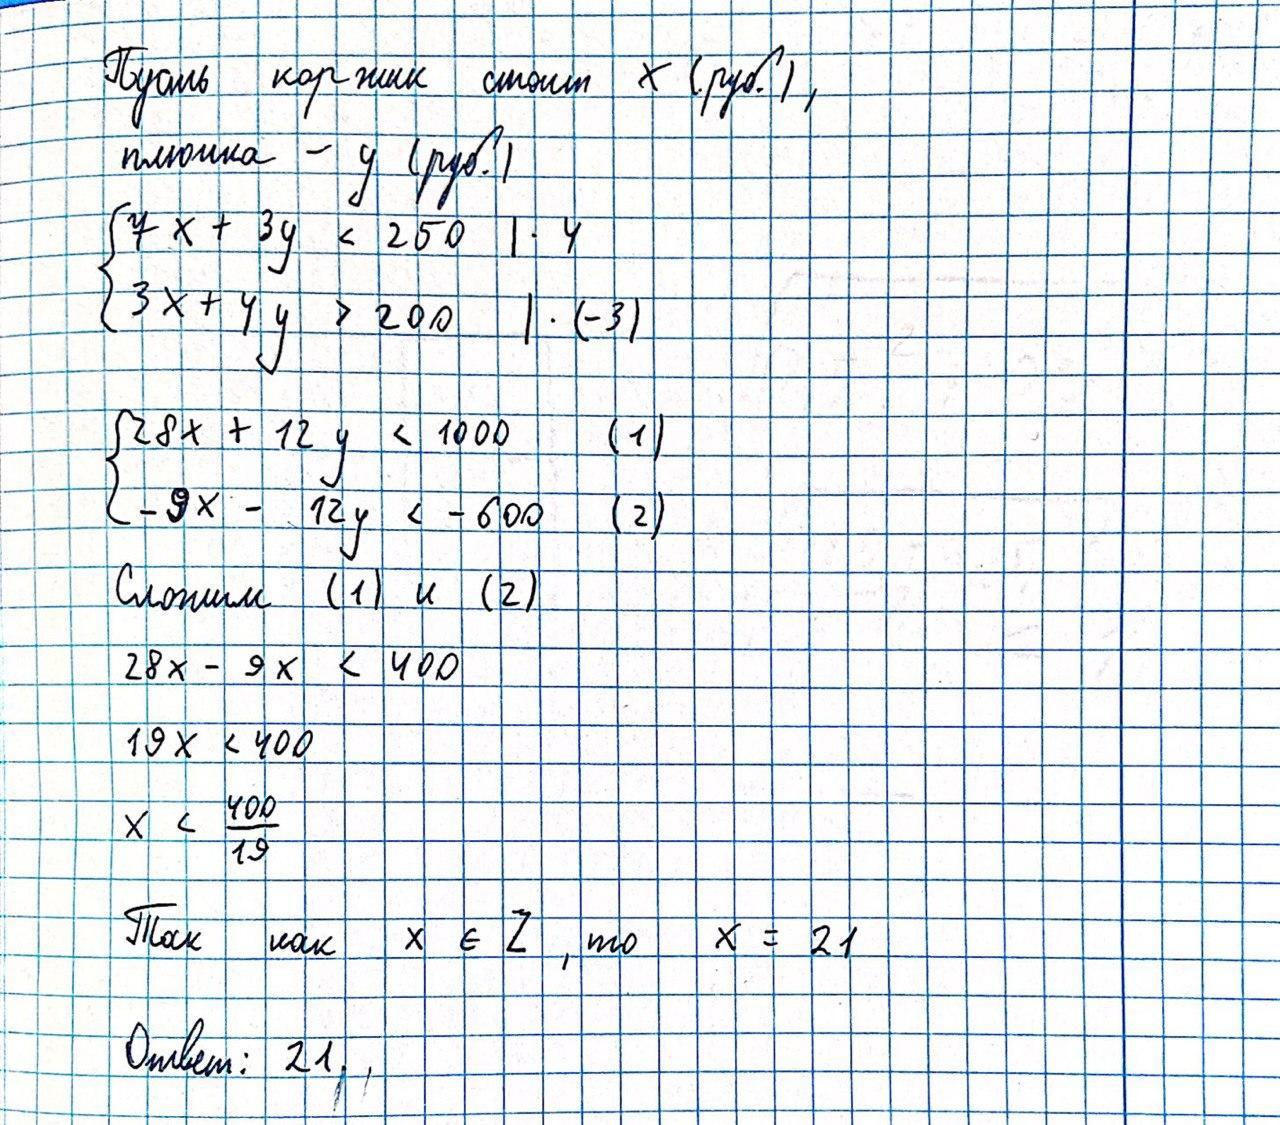 Пусть коржик стоит x (руб.),
плюшка - y (руб.)
{ 7x + 3y < 250 | · 4
3x + 4y > 200 | · (-3)
{ 28x + 12y < 1000 (1)
-9x - 12y < -600 (2)
Сложим (1) и (2)
28x - 9x < 400
19x < 400
x < 400/19
Так как x ∈ Z, то x = 21
Ответ: 21